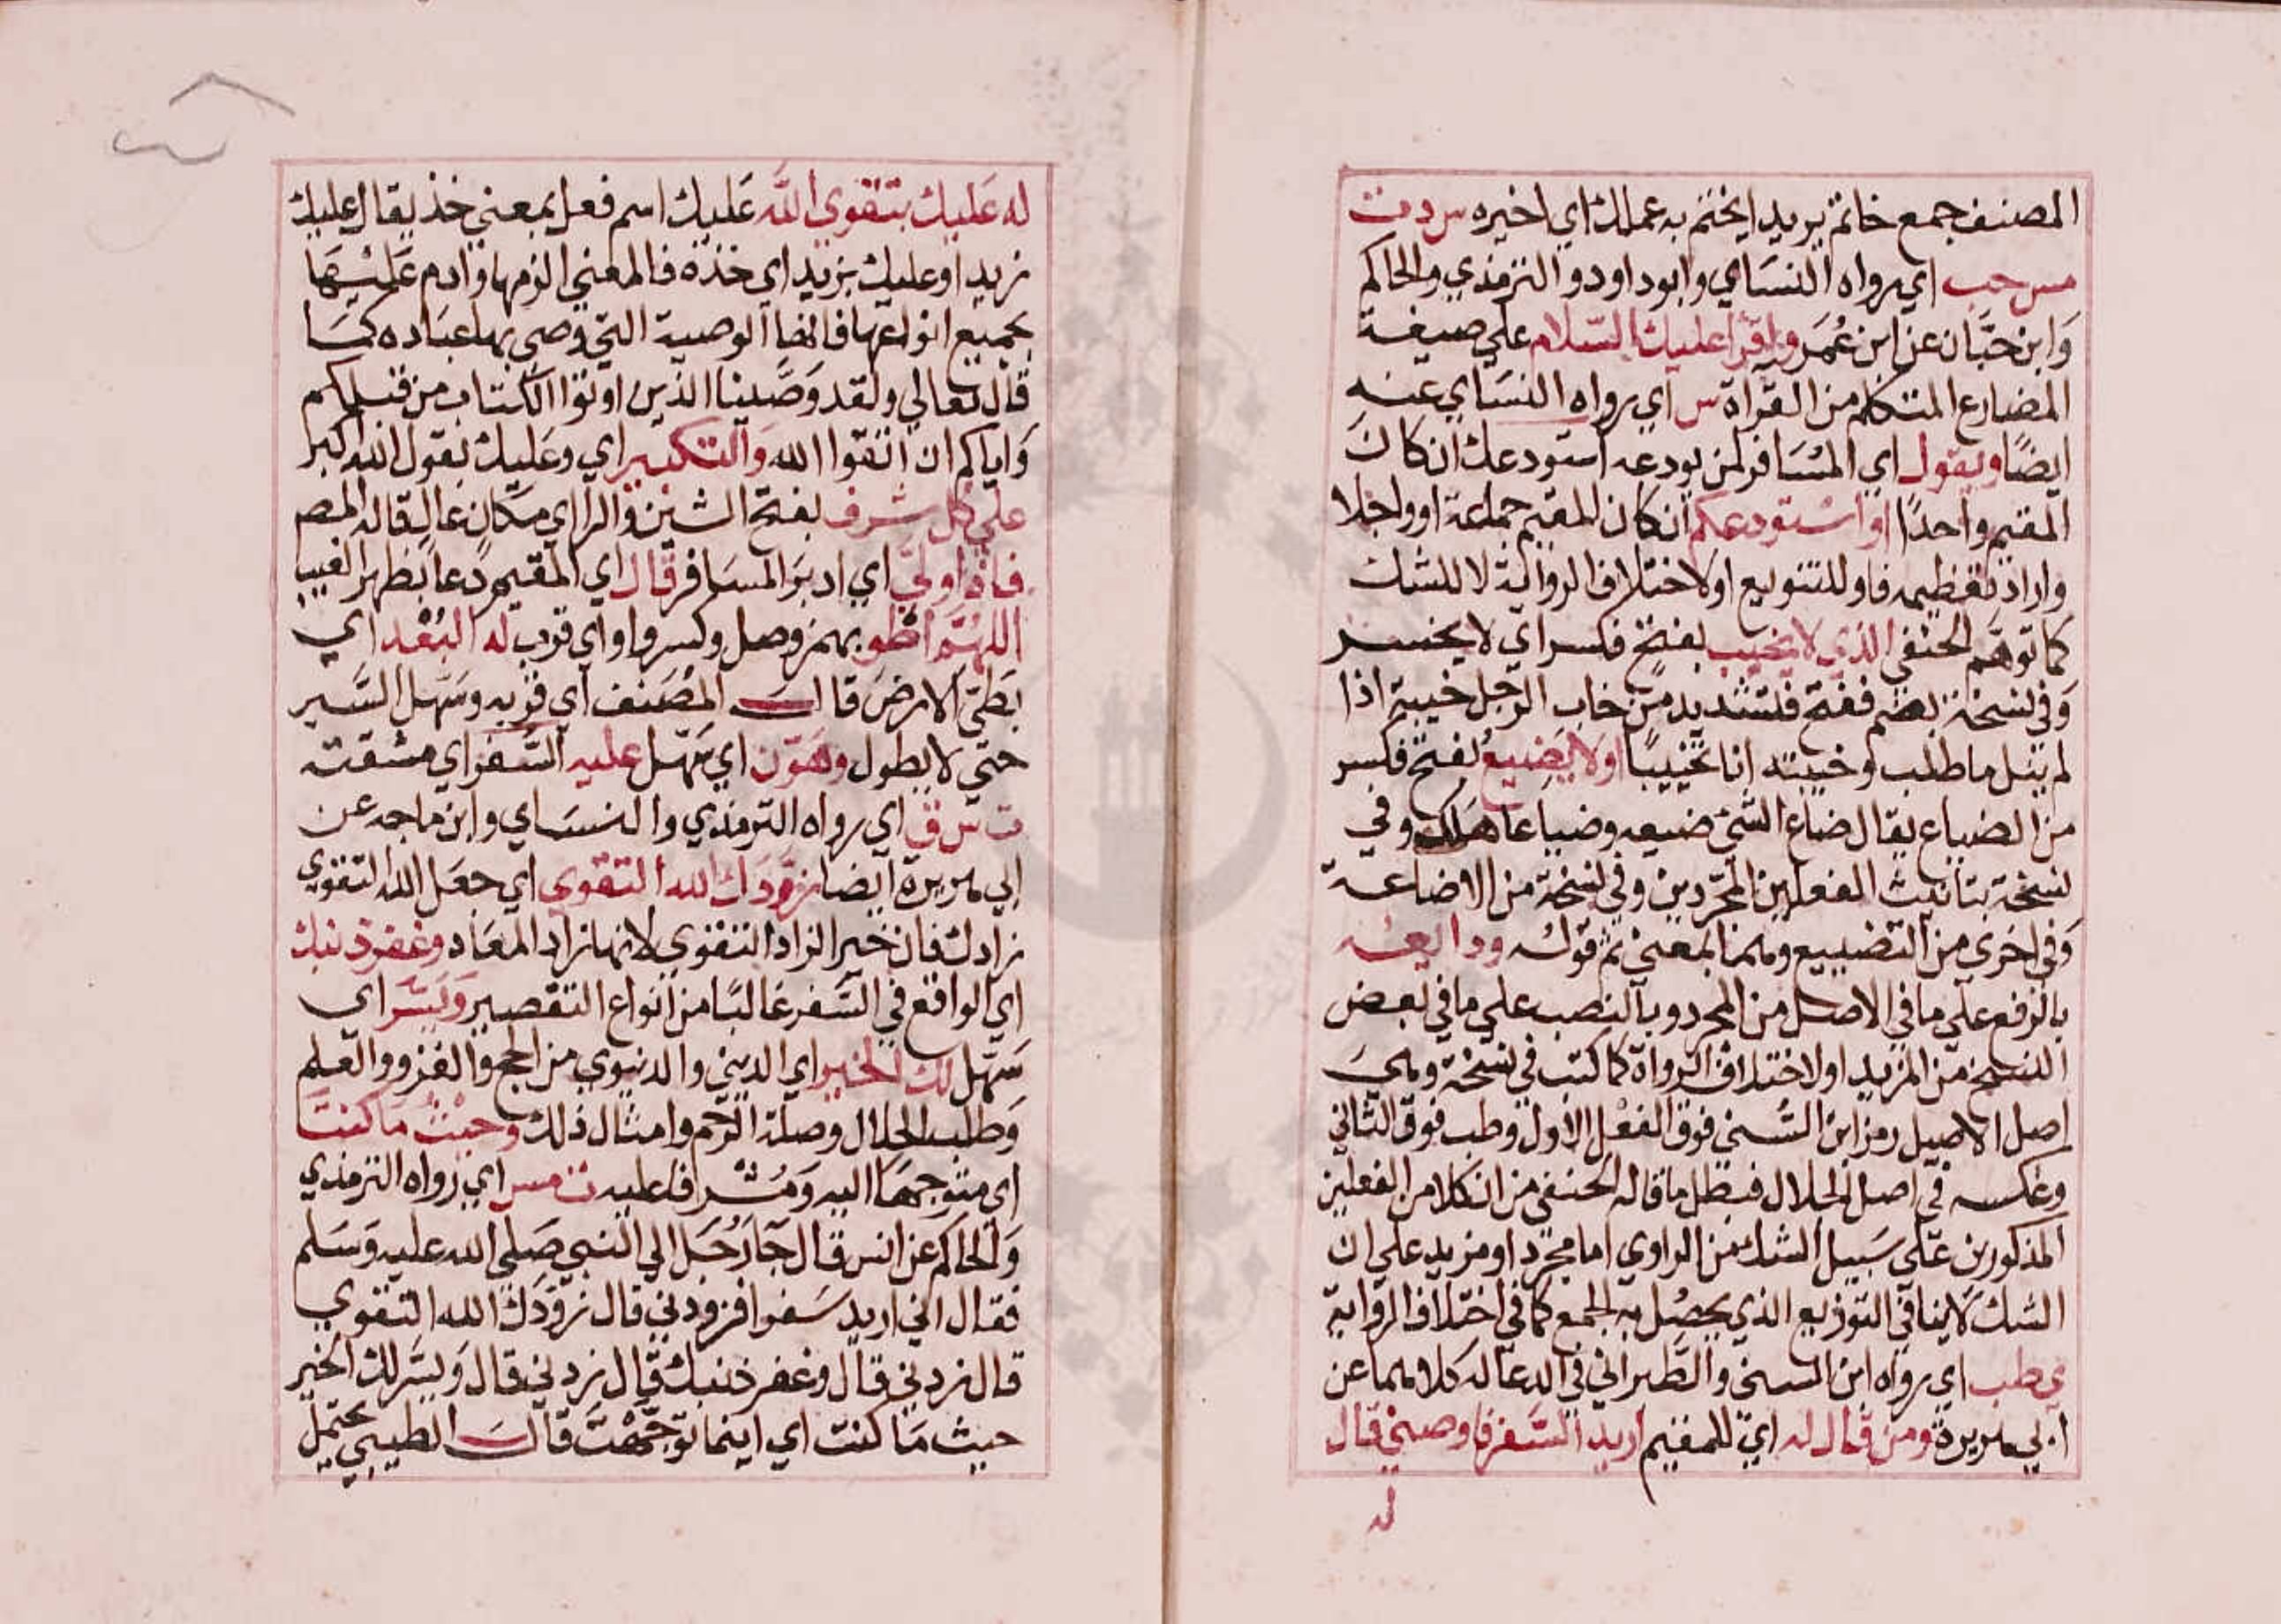 المصنف جمع خاتم يريد ايختم به عملك اي اخيره س د ت
مس حب اي رواه النساي وابو داود والترمذي والحاكم
وابن حبان عن ابن عمر واقرا عليك السلام علي صيغة
المضارع المتكلم من القراة س اي رواه النساي عنه
ايضا ويقول اي المسافر لمن يودعه استودعك ان كان
المقيم واحدا او استودعكم ان كان المقيم جماعة او واحدا
واراد تعظيمه فاو للتنويع او لاختلاف الرواية لا للشك
كما توهم الحنفي الذي لا يخيب بفتح فكسر اي لا يخسر
وفي نسخة بضم ففتح فتشديد من خاب الرجل خيبة اذا
لم ينل ما طلب وخيبته انا تخييبا او لا يضيع بفتح فكسر
من الضياع يقال ضاع الشي ضيعه وضياعا هلك وفي
نسخة بتانيث الفعلين المجردين وفي نسخة من الاضاعة
وفي اخري من التضييع وهما بمعني ثم قوله ودايعه
بالرفع علي ما في الاصل من المجرد وبالنصب علي ما في بعض
النسخ من المزيد او لاختلاف الرواة كما كتب في نسخة وهي
اصل الاصيل رمز ابن السني فوق الفعل الاول وطب فوق الثاني
وعكسه في اصل الجلال فبطل ما قاله الحنفي من ان كلا من الفعلين
المذكورين علي سبيل الشك من الراوي اما مجرد او مزيد علي ان
الشك لا ينافي التوزيع الذي يحصل به الجمع كما في اختلاف الرواية
ي طب اي رواه ابن السني والطبراني في الدعا له كلاهما عن
ابي هريرة ومن قال له اي للمقيم اريد السفر فاوصني قال
له
له عليك بتقوي الله عليك اسم فعل بمعني خذ يقال عليك
زيدا وعليك بزيد اي خذه فالمعني الزمها وادم عليها
بجميع انواعها فانها الوصية التي وصي بها عباده كما
قال تعالي ولقد وصينا الذين اوتوا الكتاب من قبلكم
واياكم ان اتقوا الله والتكبير اي وعليك بقول الله اكبر
علي كل شرف بفتح الشين والرا اي مكان عال قاله المص
فاذا ولي اي ادبر المسافر قال اي المقيم دعا بظهر الغيب
اللهم اطو بهمز وصل وكسر واو اي قرب له البعد اي
بطي الارض قال المصنف اي قربه وسهل السير
حتي لا يطول وهون اي سهل عليه السفر اي مشقته
ت س ق اي رواه الترمذي والنساي وابن ماجه عن
ابي هريرة ايضا زودك الله التقوي اي جعل الله التقوي
زادك فان خير الزاد التقوي لانها زاد المعاد وغفر ذنبك
اي الواقع في السفر غالبا من انواع التقصير ويسر اي
سهل لك الخير اي الديني والدنيوي من الحج والغزو والعلم
وطلب الحلال وصلة الرحم وامثال ذلك وحيث ما كنت
اي متوجها اليه ومشرفا عليه ت مس اي رواه الترمذي
والحاكم عن انس قال جا رجل الي النبي صلي الله عليه وسلم
فقال اني اريد سفرا فزودني قال زودك الله التقوي
قال زدني قال وغفر ذنبك قال زدني قال ويسر لك الخير
حيث ما كنت اي اينما توجهت قال الطيبي يحتمل